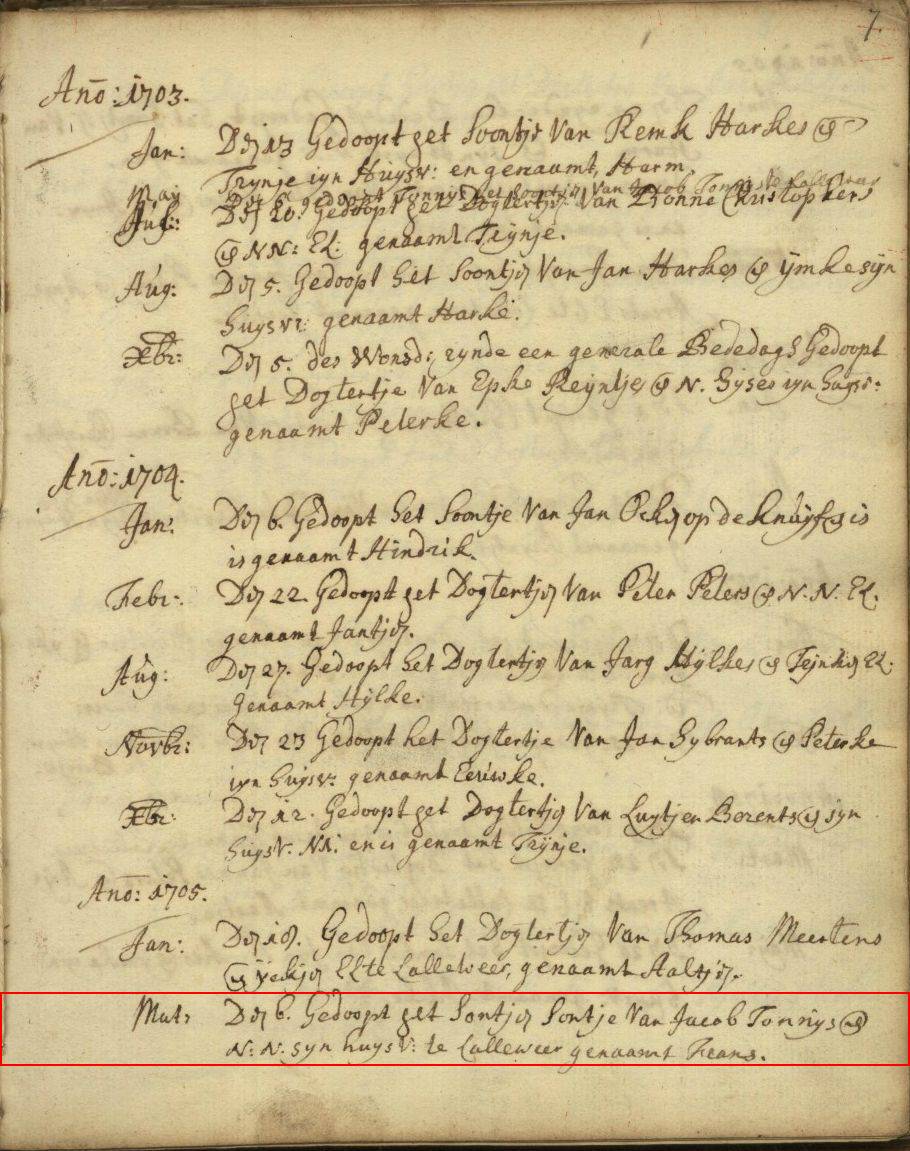 7.
Anō: 1703.
Jan: Den 13 Gedoopt het Soontje Van Remk Harkes @
Trynje syn Huysvr: en genaamt, Harm.
May Den 6. gedoopt Tonnys het soontjen Van Jacob Tonnis te Lalleweer
Aug: Den 20. Gedoopt het Dogtertjen Van Tjonne Christophers
@ NN: El: genaamt Trynje.
Aúg: Den 5. Gedoopt het Soontjen Van Jan Harkes @ ÿmke syn
huysvr: genaamt Harke.
Xbr: Den 5. des Wonsd: zynde een generale Bededagh Gedoopt
het Dogtertje Van Epke Reyntjes @ N. Syses syn huysvr:
genaamt Peterke.
Anō: 1704.
Jan: Den 6. Gedoopt het Soontje Van Jan Ockes op de Knuyf @ is
is genaamt Hindrik.
Febr: Den 22. Gedoopt het Dogtertjen Van Peter Peters @ N. N. El.
genaamt Jantjen.
Aúg: Den 27. Gedoopt het Dogtertjen Van Jarg Hylkes @ Tejnkes El.
genaamt Hÿlke.
Novbr: Den 23 Gedoopt het Dogtertje Van Jan Sybrants @ Peterke
syn huysvr: genaamt Eeuwke.
Xbr: Den 12. Gedoopt het Dogtertjen Van Luytjen Berents @ syn
huysvr. NN: en is genaamt Trÿnje.
Anō: 1705.
Jan: Den 18. Gedoopt het Dogtertjen Van Thomas Meertens
@ Yekjen El te Lalleweer, genaamt Aaltjen.
Mat, Den 6. Gedoopt het Sontjen Sontje Van Jacob Tonnys @
N: N: syn huysv: te Lalleweer genaamt Frans.